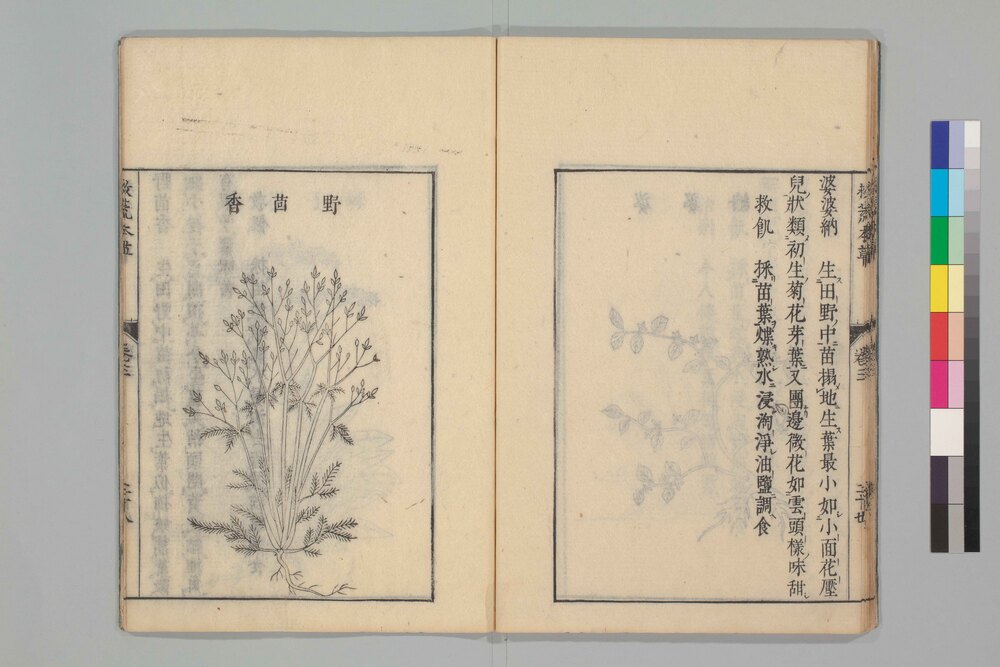 婆婆納　生田野中苗搨地生葉最小如小面花黶
兒狀類初生菊花芽葉又團邊微花如雲頭樣味甜
救飢　採苗葉煠熟水浸淘淨油鹽調食
野茴香
救荒本草
卷三